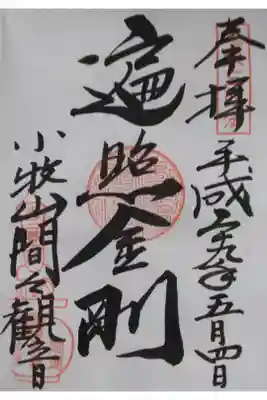 奉拝 平成二九年五月四日
遍照金剛
小牧山間々觀音